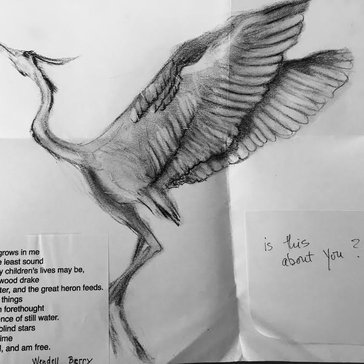 grows in me
least sound
children's lives may be,
wood drake
, and the great heron feeds.
things
forethought
of still water.
blind stars
, and am free.
Wendell Berry
is this
about you?